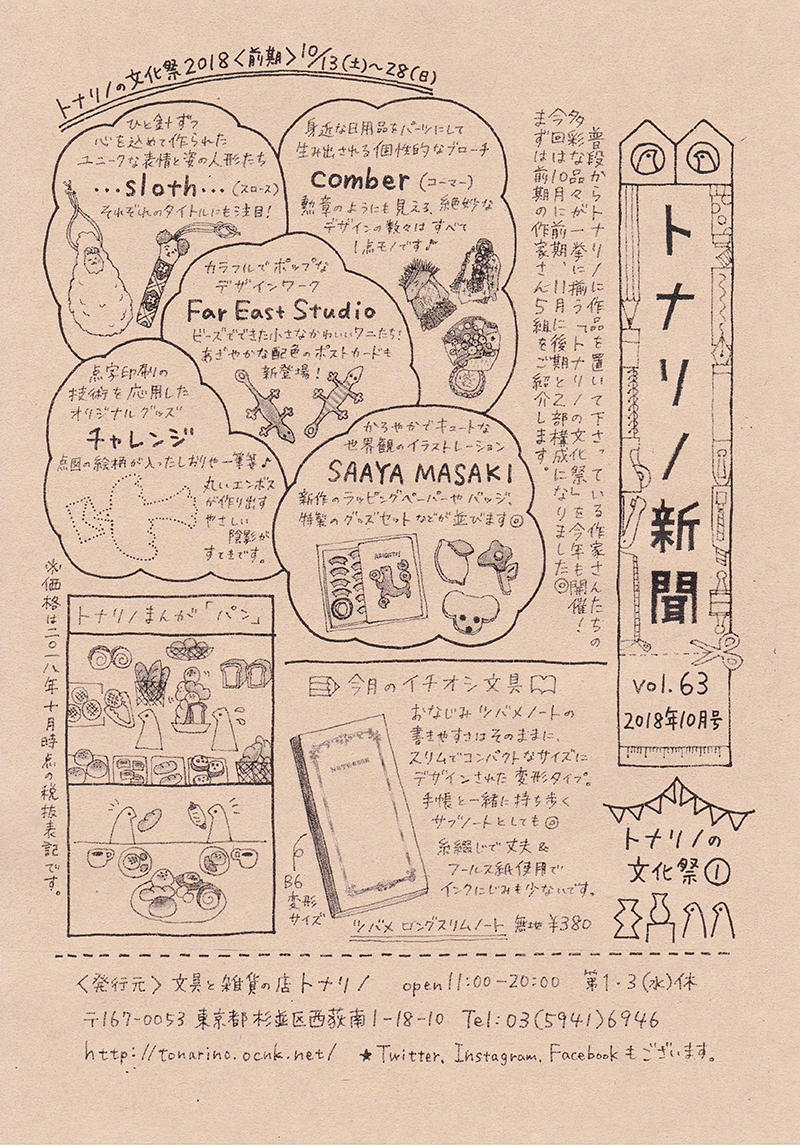 トナリノの文化祭2018〈前期〉10/13(土)～28(日)
トナリノ新聞
vol.63
2018年10月号
普段からトナリノに作品を置いて下さっている作家さんたちの
多彩な品々が一挙に揃う「トナリノの文化祭」を今年も開催！
今回は10月に前期、11月に後期と2部構成になりました◎
まずは前期の作家さん5組をご紹介します。
ひと針ずつ
心を込めて作られた
ユニークな表情と姿の人形たち
...sloth...(スロース)
それぞれのタイトルにも注目！
身近な日用品をパーツにして
生み出される個性的なブローチ
comber (コーマー)
勲章のようにも見える、絶妙な
デザインの数々はすべて
1点モノです♪
カラフルでポップな
デザインワーク
Far East Studio
ビーズでできた小さなかわいいワニたち！
あざやかな配色のポストカードも
新登場！
点字印刷の
技術を応用した
オリジナルグッズ
チャレンジ
点図の絵柄が入ったしおりや一筆箋♪
丸いエンボス
が作り出す
やさしい
陰影が
すてきです。
かろやかでキュートな
世界観のイラストレーション
SAAYA MASAKI
新作のラッピングペーパーやバッジ、
特製のグッズセットなどが並びます◎
トナリノの
文化祭①
※価格は二〇一八年十月時点の税抜表記です。
トナリノまんが「パン」
今月のイチオシ文具
おなじみツバメノートの
書きやすさはそのままに、
スリムでコンパクトなサイズに
デザインされた変形タイプ。
手帳と一緒に持ち歩く
サブノートとしても◎
糸綴じで丈夫&
フールス紙使用で
インクにじみも少ないです。
NOTEBOOK
B6
変形
サイズ
ツバメ ロングスリムノート 無地 ¥380
〈発行元〉文具と雑貨の店トナリノ open11:00-20:00 第1・3(水)休
〒167-0053 東京都杉並区西荻南1-18-10 Tel:03(5941)6946
http://tonarino.ocnk.net/ ★Twitter、Instagram、Facebookもございます。